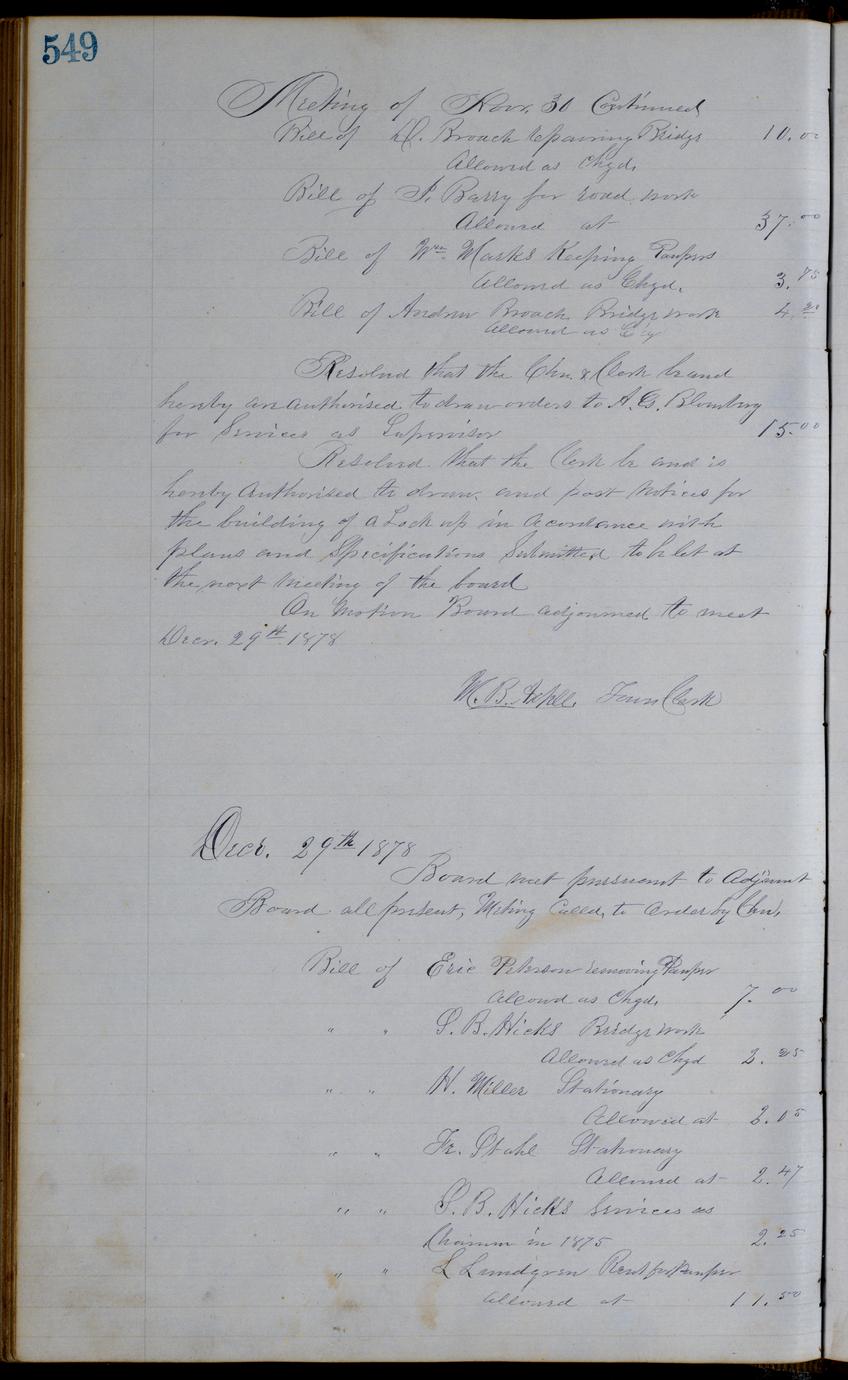 549
Meeting of Nov. 30 Continued
Bill of D. Broach repairing Bridge 10.00
Allowed as Chgd.
Bill of P. Barry for road work
Allowed at 37.00
Bill of Wm Marks Keeping Paupers
Allowed as Chgd. 3.75
Bill of Andrew Broach Bridge work 4.20
Allowed as Chg
Resolved that the Chn. & Clerk be and
hereby are authorised to draw orders to A. G. Blomberg
for Services as Supervisor 15.00
Resolved that the Clerk be and is
hereby Authorised to draw and post Notices for
the building of a Lock up in Accordance with
plans and Specifications Submitted to be let at
the next Meeting of the board
On Motion Board adjourned to meet
Decr. 29th 1878
W. B. Town Clerk
Decr. 29th 1878
Board met pursuant to Adjmnt
Board all present, Meting Called to Order by Chn.
Bill of Eric Peterson removing Pauper
Allowd as Chgd. 7.00
" " S. B. Hicks Bridge work
Allowed as Chgd 2.25
" " H. Miller Stationary
Allowed at 2.05
" " Fr. Stahl Stationary
Allowed at 2.47
" " S. B. Hicks Services as
Chairman in 1875 2.25
" " L Lundgren Rent for Pauper
allowed at 11.50